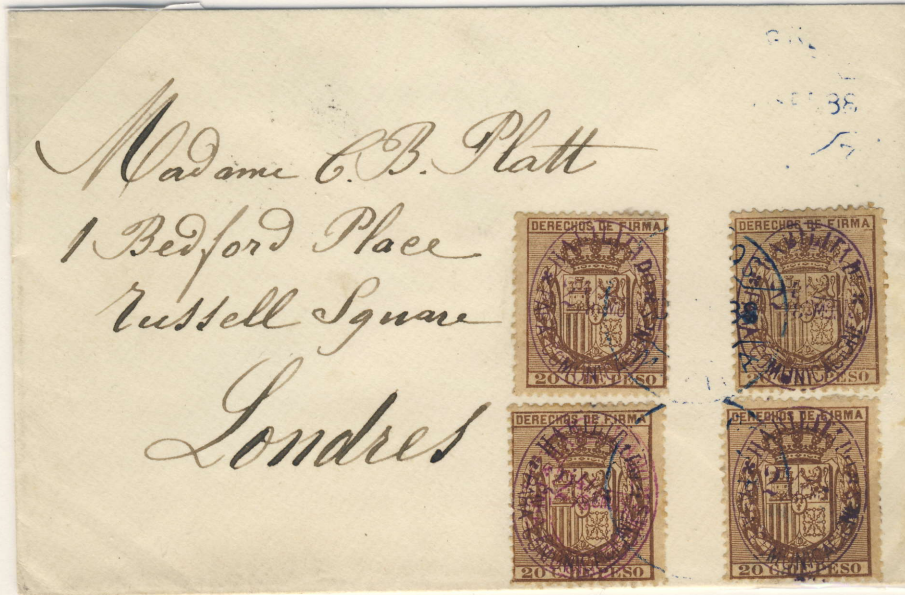 88
Madame C. B. Platt
1 Bedford Place
Russell Square
Londres
DERECHOS DE FIRMA
20 C. DE PESO
DERECHOS DE FIRMA
20 C. DE PESO
DERECHOS DE FIRMA
20 C. DE PESO
DERECHOS DE FIRMA
20 C. DE PESO